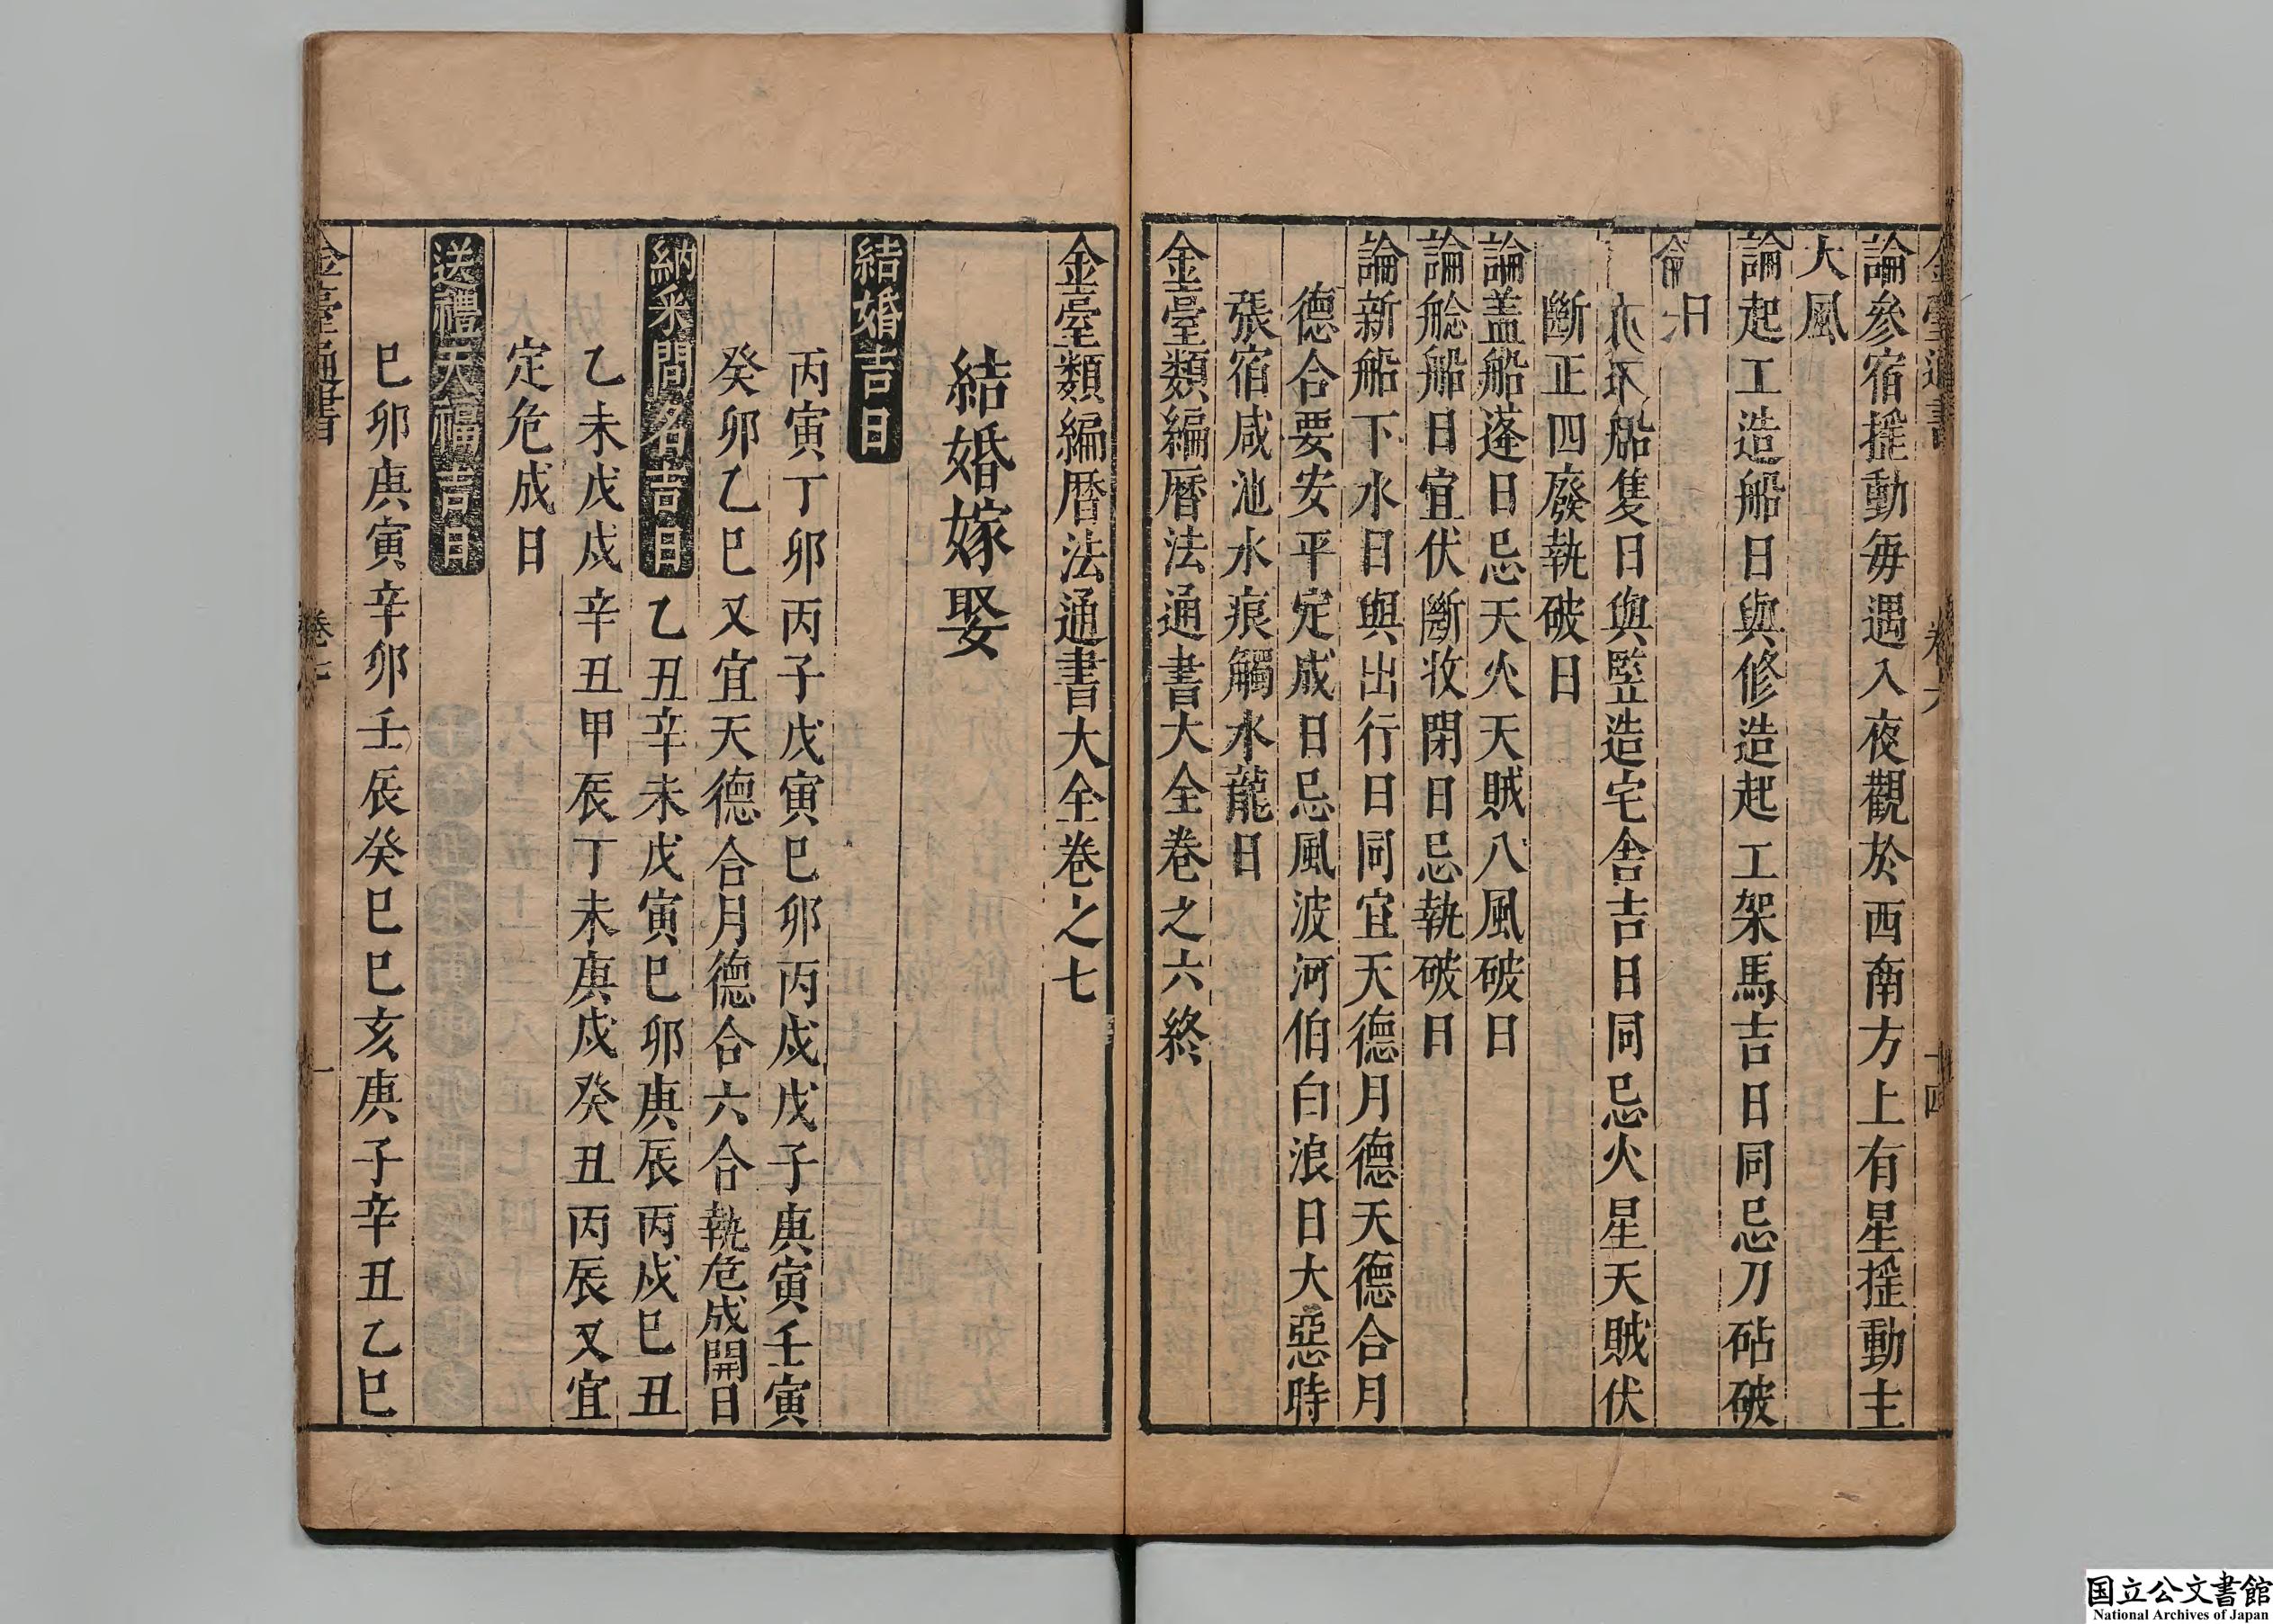 論參宿揺動毎遇入夜觀於西南方上有星揺動主
大風
論起工造船日與修造起工架馬吉日同忌刀砧破
日
船隻日與竪造宅舍吉日同忌火星天賊伏
斷正四廢執破日
論盖船蓬日忌天火天賊八風破日
論艌船日宜伏斷收閉日忌執破日
論新船下水日與出行日同宜天德月德天德合月
德合要安平定成日忌風波河伯白浪日大惡時
張宿咸池水痕觸水龍日
金臺類編曆法通書大全卷之六終
金臺類編曆法通書大全卷之七
結婚嫁娶
結婚吉日
丙寅丁卯丙子戊寅巳卯丙戌戊子庚寅壬寅
癸卯乙巳又宜天德合月德合六合執危成開日
納釆問名吉日 乙丑辛未戊寅巳卯庚辰丙戌巳丑
乙未戊戌辛丑甲辰丁未庚戌癸丑丙辰又宜
定危成日
送禮天福吉日
巳卯庚寅辛卯壬辰癸巳巳亥庚子辛丑乙巳
金臺通書 卷七 一
国立公文書館
National Archives of Japan